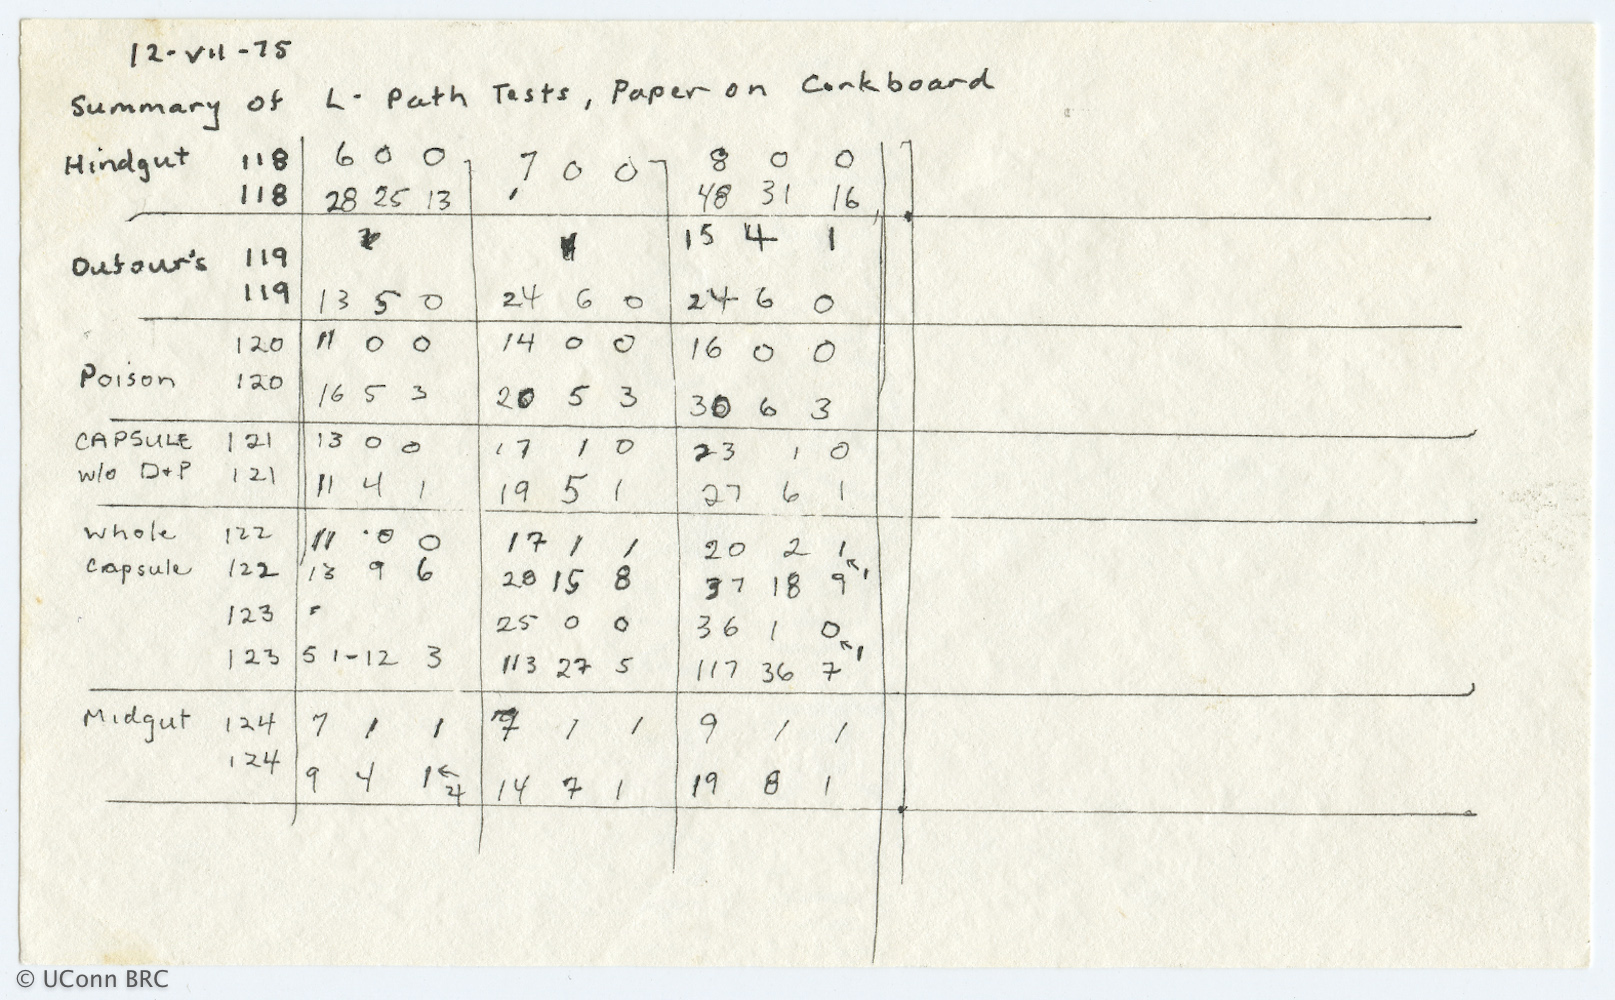 12-VII-75
Summary of L- Path Tests, Paper on Corkboard
Hindgut 118 6 0 0 7 0 0 8 0 0
118 28 25 13 48 31 16
15 4 1
Dufour's 119
119 13 5 0 24 6 0 24 6 0
120 11 0 0 14 0 0 16 0 0
Poison 120 16 5 3 20 5 3 30 6 3
CAPSULE 121 13 0 0 17 1 0 23 1 0
w/o D+P 121 11 4 1 19 5 1 27 6 1
Whole 122 11 0 0 17 1 1 20 2 1
Capsule 122 13 9 6 28 15 8 37 18 9 ↖1
123 25 0 0 36 1 0
123 51-12 3 113 27 5 117 36 7 ↖1
Midgut 124 7 1 1 9 1 1 9 1 1
124 9 4 1 ↖4 14 7 1 19 8 1
© UConn BRC